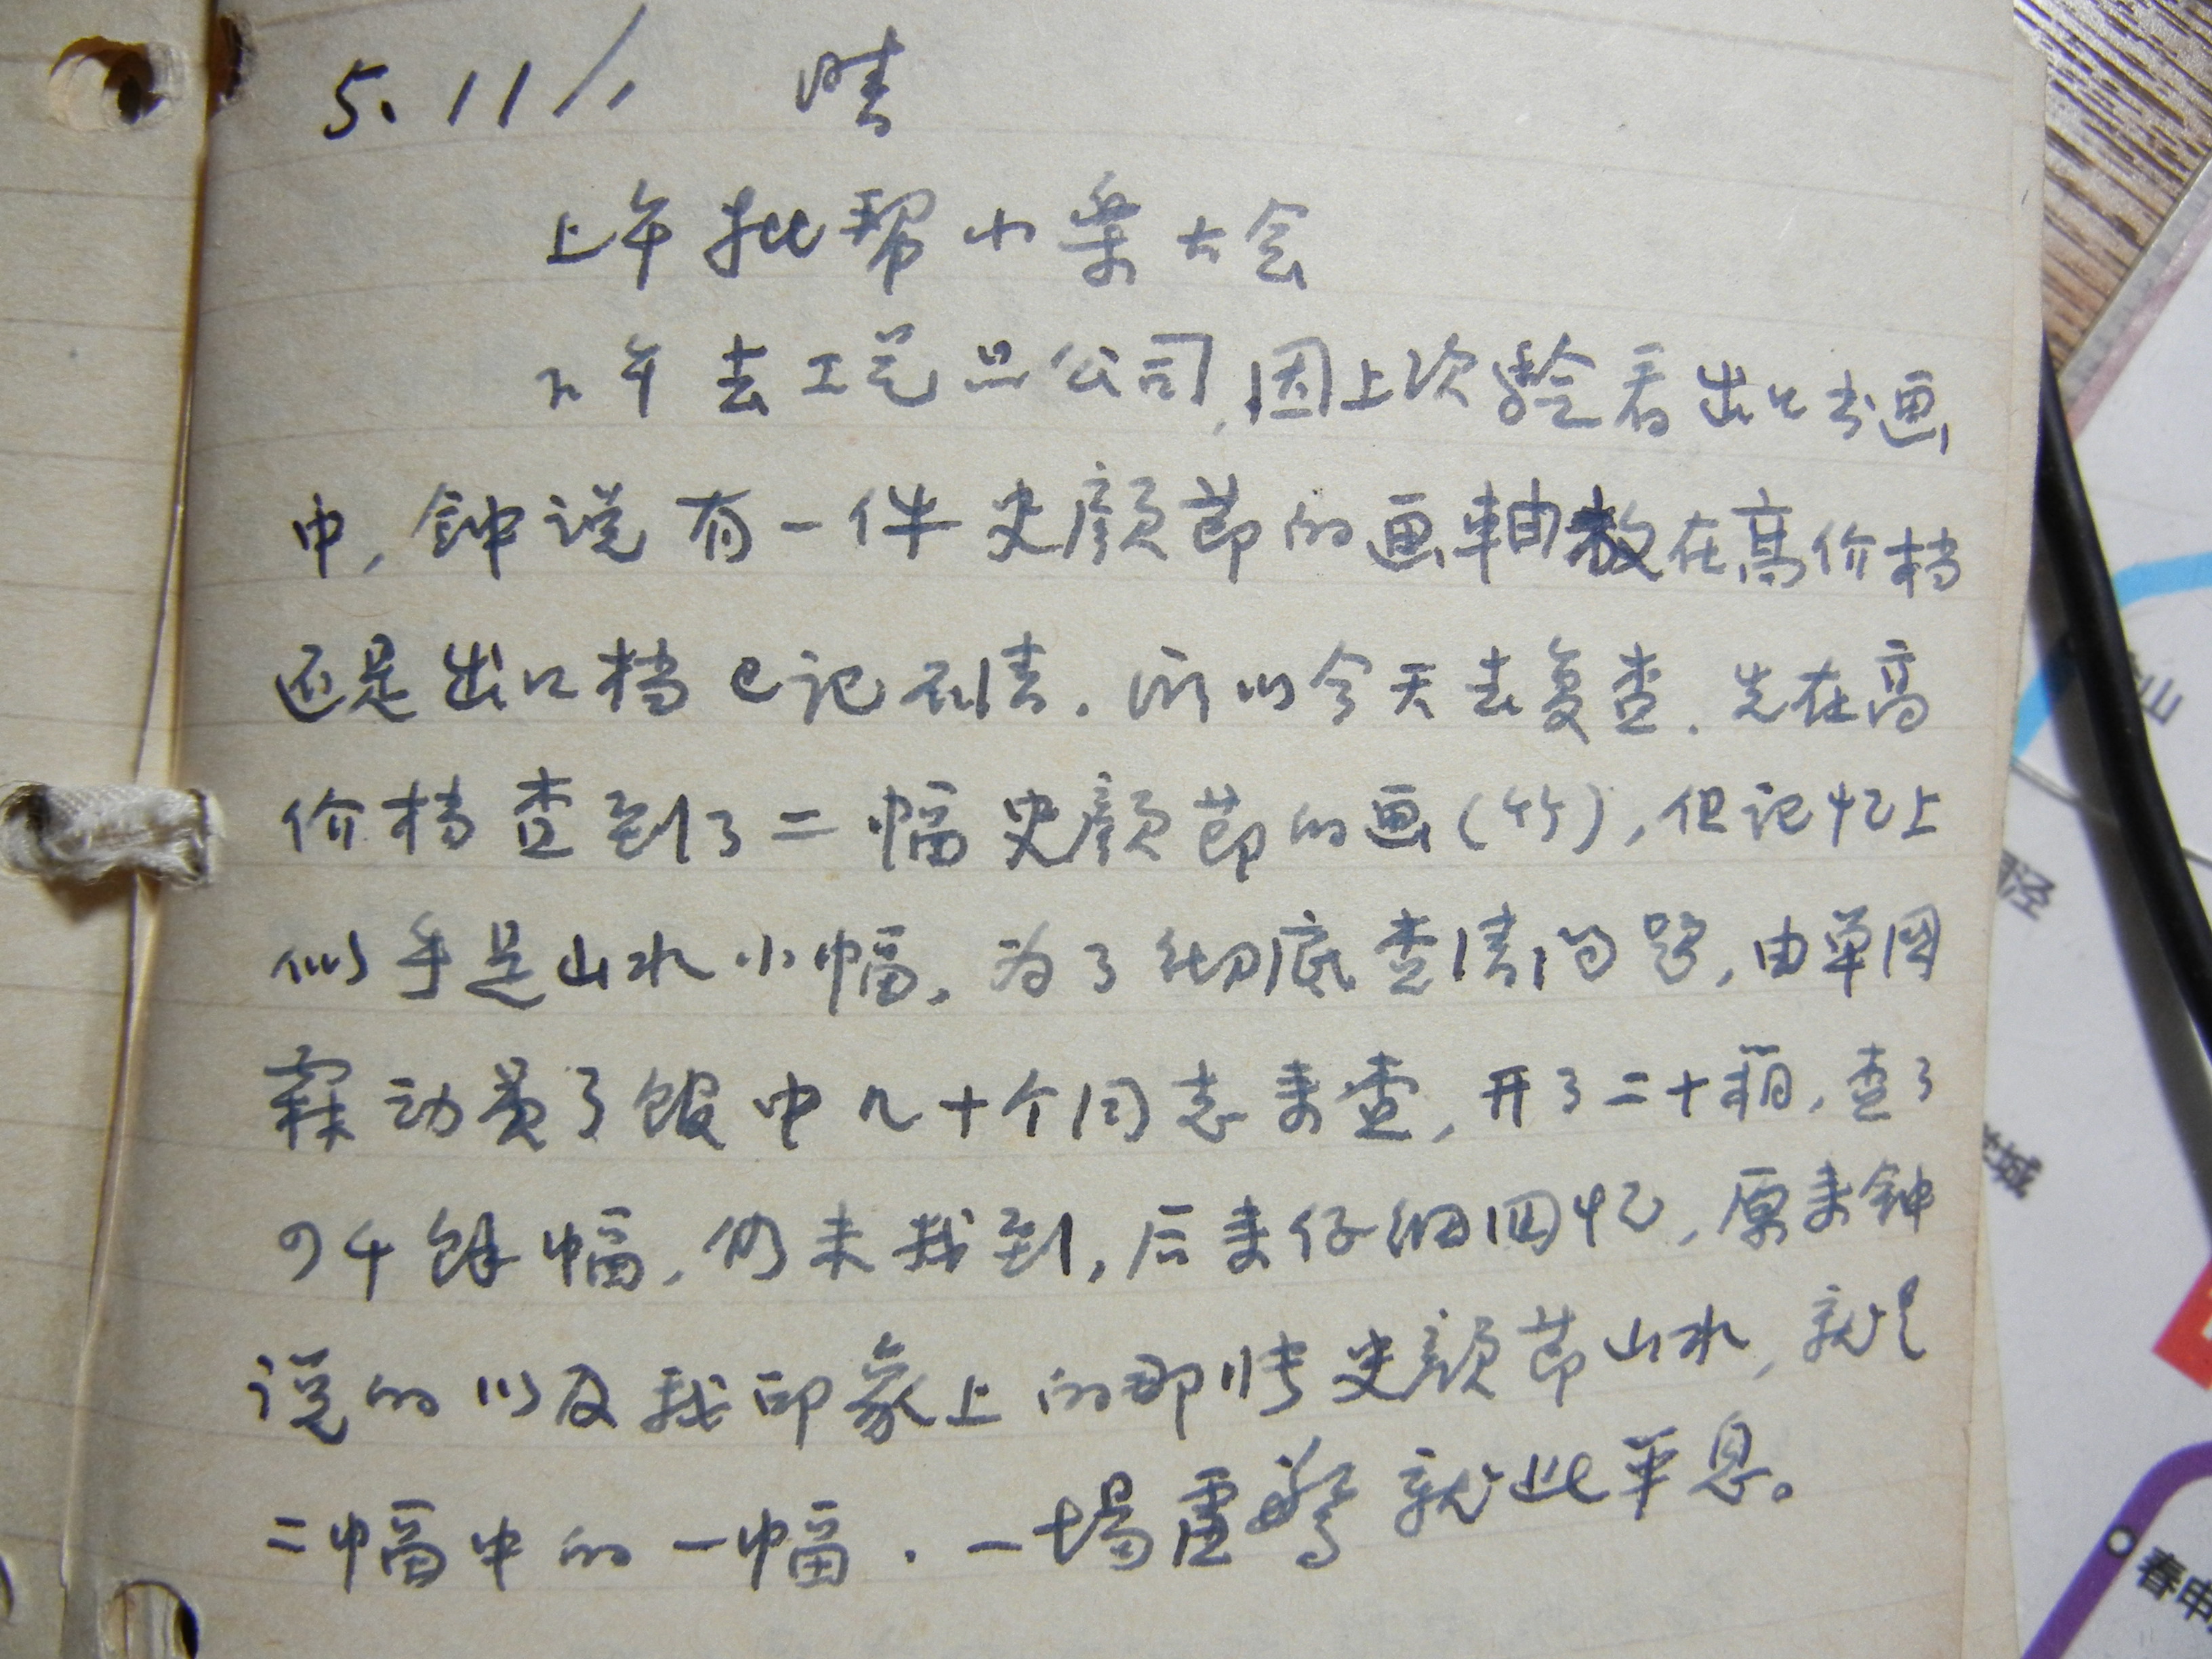 5.11/1 晴
上午批帮小集大会
下午去工艺品公司,因上次验看出口书画
中,钟说有一件史颜节的画轴放在高价档
还是出口档已记不清.所以今天去复查.先在高
价档查到了二幅史颜节的画(竹),但记忆上
似乎是山水小幅。为了彻底查清问题,由单国
霖动员了馆中几十个同志来查,开了二十箱,查了
四千馀幅,仍未找到,后来仔细回忆,原来钟
说的以及我印象上的那张史颜节山水,就是
二幅中的一幅.一场虚惊就此平息。
山
泾
城
春申